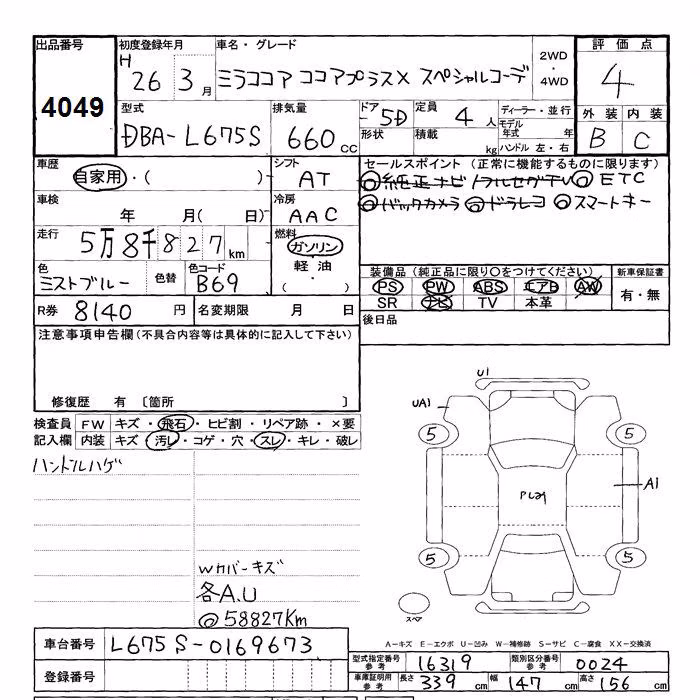 出品番号 初度登録年月 車名・グレード 2WD・4WD 評価点
4049 H 26 3月 ミラココア ココアプラスX スペシャルコーデ 4
型式 排気量 ドア 定員 ディーラー・並行 外装 内装
DBA-L675S 660cc 5D 4人 モデル年式 年 B C
形状 積載 kg ハンドル 左・右
車歴 自家用・( ) シフト AT セールスポイント(正常に機能するものに限ります)
◎純正ナビ ノフルセグTV ◎ETC
車検 年 月( 日) 冷房 AAC ◎バックカメラ ◎ドラレコ ◎スマートキー
走行 5万8千827km 燃料 ガソリン・軽油・( )
色 ミストブルー 色替 色コード B69
装備品(純正品に限り○をつけてください) 新車保証書
PS PW ABS エアB AW 有・無
SR ナビ TV 本革
R券 8140円 名変期限 月 日 後日品
注意事項申告欄(不具合内容等は具体的に記入して下さい)
修復歴 有〔箇所 〕
検査員 FW キズ・飛石・ヒビ割・リペア跡・×要
記入欄 内装 キズ・汚レ・コゲ・穴・スレ・キレ・破レ
ハンドルハゲ
Wカバーキズ
各A.U
@58827Km
U1
UA1
5 5
A1
5 5
スペア
A-キズ E-エクボ U-凹み W-補修跡 S-サビ C-腐食 XX-交換済
車台番号 L675S-0169673
型式指定番号 参考 16319 類別区分番号 参考 0024
登録番号 車庫証明用 参考 長さ 339cm 幅 147cm 高さ 156cm